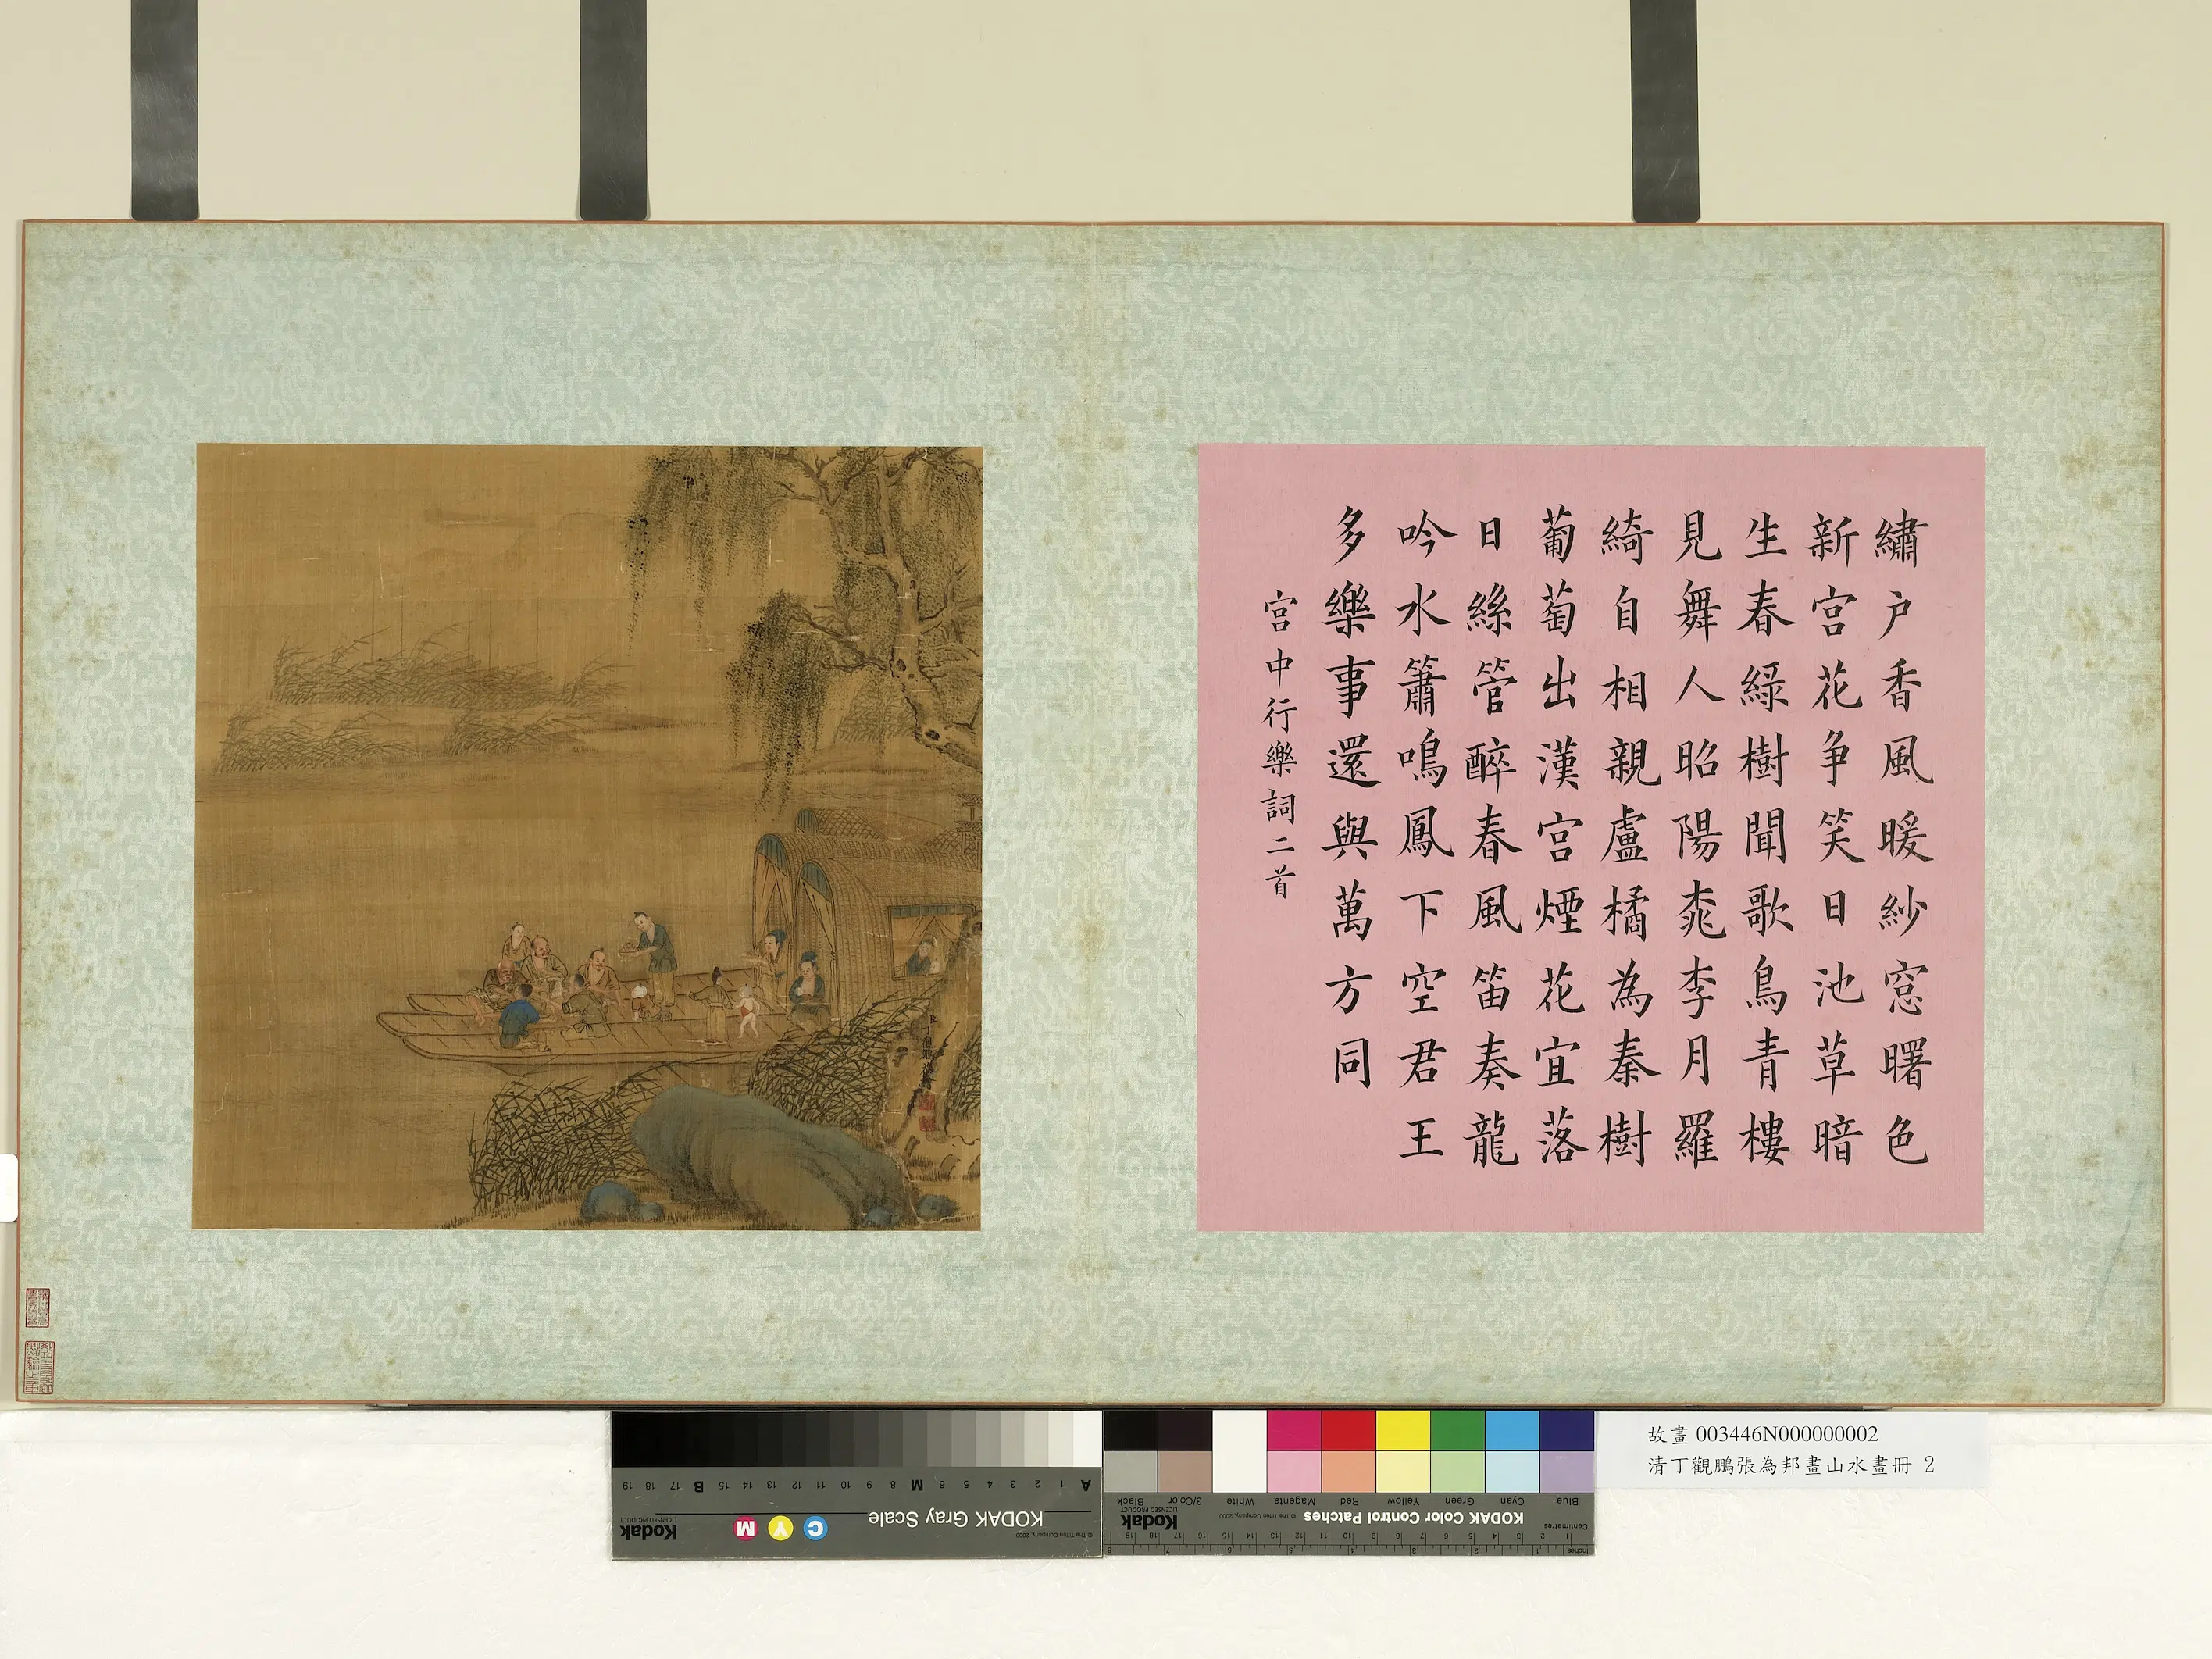 繡户香風暖紗窓曙色
新宮花争笑日池草暗
生春綠樹聞歌鳥青樓
見舞人昭陽桃李月羅
綺自相親盧橘為秦樹
葡萄出漢宮煙花宜落
日絲管醉春風笛奏龍
吟水簫鳴鳳下空君王
多樂事還與萬方同
宮中行樂詞二首
故畫 003446N000000002
清丁觀鵬張為邦畫山水畫冊 2
A 1 2 3 4 5 6 M 8 9 10 11 12 13 14 15 B 17 18 19
KODAK Gray Scale
C Y M
Kodak
LICENSED PRODUCT
© The Tiffen Company, 2000
Blue Cyan Green Yellow Red Magenta White 3/Color Black
KODAK Color Control Patches
© The Tiffen Company, 2000
Kodak
LICENSED PRODUCT
Centimetres
Inches